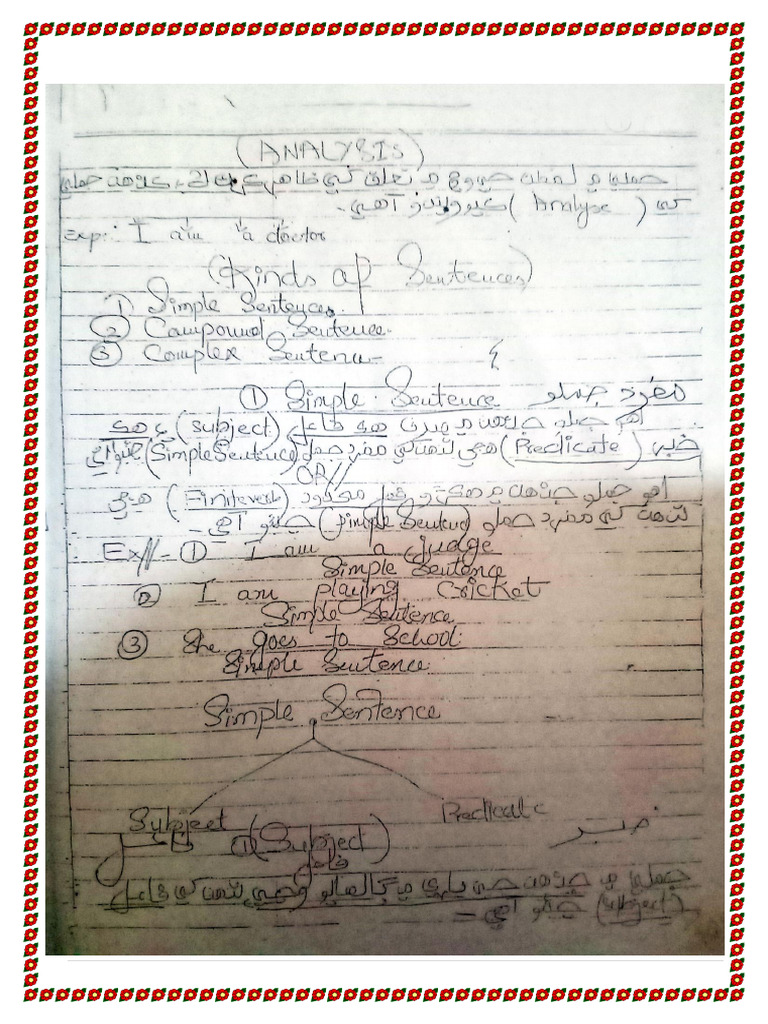 (ANALYSIS)
جملي ۾ لفظن جي وچ ۾ تعلق کي ظاهر
کي (Analyse) ڪيو ويندو آهي۔
Exp:- I am a doctor
(Kinds of Sentences)
① Simple Sentences.
② Compound Sentence.
③ Complex Sentence-
① Simple Sentence مفرد جملو
اهو جملو جنهن ۾ هڪ فاعل (subject) ۽ هڪ
خبر (Predicate) هجي تنهن کي مفرد جملو (Simple Sentence) چئبو آهي
OR//
اهو جملو جنهن ۾ هڪ فعل محدود (Finiteverb) هجي
تنهن کي مفرد جملو (Simple Sentence) چئبو آهي۔
Ex//- ① I am a Judge
Simple Sentence
② I am playing Cricket
Simple Sentence
③ She goes to School:
Simple Sentence
Simple Sentence
Subject Predicate
فاعل خبر
① (Subject)
فاعل
جملي ۾ جنهن جي باري ۾ ڳالهايو وڃي تنهن کي فاعل
(subject) چئبو آهي۔